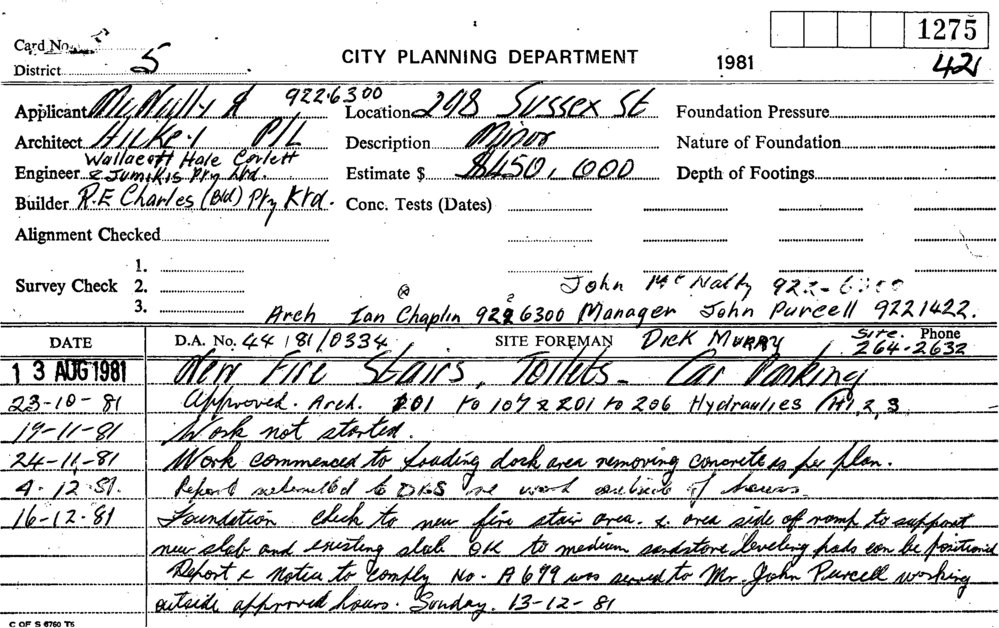 1275
Card No.
District 5 CITY PLANNING DEPARTMENT 1981 421
Applicant McNally A 922.6300 Location 298 Sussex St Foundation Pressure
Architect Hilkey P/L Description Minor Nature of Foundation
Wallacott Hale Corlett
Engineer & Jumikis Pty Ltd. Estimate $ $450,000 Depth of Footings
Builder R.E Charles (Bld) Pty Ltd. Conc. Tests (Dates)
Alignment Checked
1.
Survey Check 2. John McNally 922-6300
3. Arch Ian Chaplin 922 6300 Manager John Purcell 9221422.
DATE D.A. No. 44/81/0334 SITE FOREMAN Dick Murry Site. Phone 264-2632
13 AUG 1981 New Fire Stairs, Toilets - Car Parking
23-10-81 Approved. Arch. 101 to 107 & 201 to 206 Hydraulics H1, 2, 3
19-11-81 Work not started.
24-11-81 Work commenced to loading dock area removing concrete as per plan.
4.12.81. Report submitted to DBS re work outside of hours.
16-12-81 Foundation check to new fire stair area. & area side of ramp to support
new slab and existing slab OK to medium sandstone leveling pads can be positioned
Report & Notice to Comply No. A 699 was served to Mr. John Purcell working
outside approved hours. Sunday. 13-12-81
C OF S 6760 T5